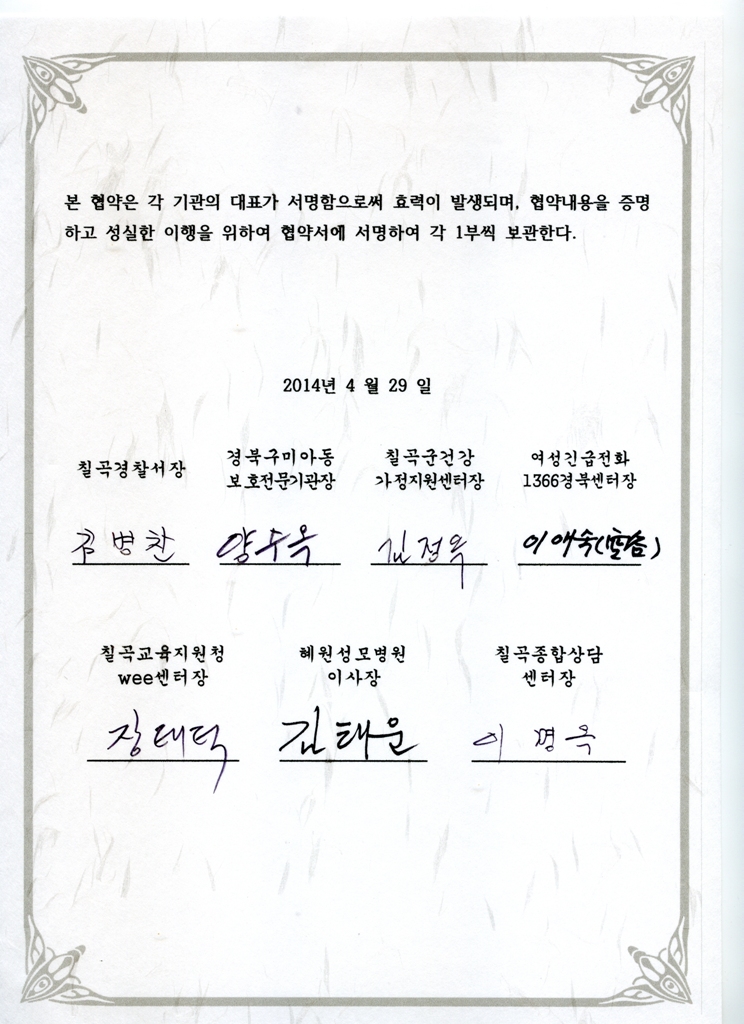 본 협약은 각 기관의 대표가 서명함으로써 효력이 발생되며, 협약내용을 증명
하고 성실한 이행을 위하여 협약서에 서명하여 각 1부씩 보관한다.
2014년 4 월 29 일
칠곡경찰서장
경북구미아동
보호전문기관장
칠곡군건강
가정지원센터장
여성긴급전화
1366경북센터장
김병찬
양수옥
김정옥
이애숙
칠곡교육지원청
wee센터장
혜원성모병원
이사장
칠곡종합상담
센터장
장태덕
김태운
이경옥